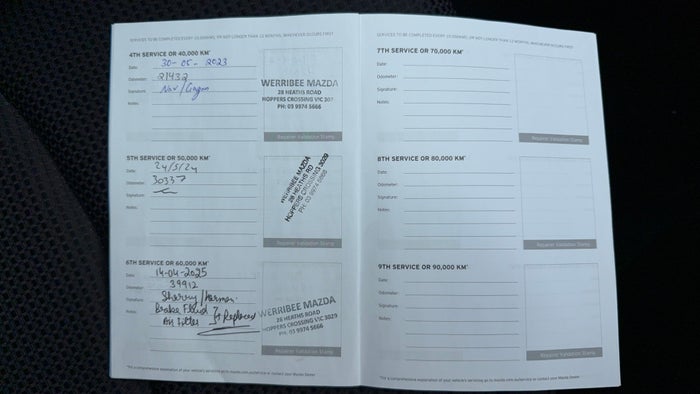 SERVICES TO BE COMPLETED EVERY 10,000KMS, OR NOT LONGER THAN 12 MONTHS, WHICHEVER OCCURS FIRST
4TH SERVICE OR 40,000 KM*
Date: 30-05-2023
Odometer: 21432
Signature:
Notes:
WERRIBEE MAZDA
28 HEATHS ROAD
HOPPERS CROSSING VIC 302
PH: 03 9974 5666
Repairer Validation Stamp
5TH SERVICE OR 50,000 KM*
Date: 24/5/24
Odometer: 30337
Signature:
Notes:
WERRIBEE MAZDA
28 HEATHS RD
HOPPERS CROSSING 3029
PH: 03 9974 5666
Repairer Validation Stamp
6TH SERVICE OR 60,000 KM*
Date: 14-04-2025
Odometer: 39912
Signature: Sherry/
Notes: Brake Fluid
Air Filter } Replaced
WERRIBEE MAZDA
28 HEATHS ROAD
HOPPERS CROSSING VIC 3029
PH: 03 9974 5666
Repairer Validation Stamp
*For a comprehensive explanation of your vehicle's servicing go to mazda.com.au/service or contact your Mazda Dealer
SERVICES TO BE COMPLETED EVERY 10,000KMS, OR NOT LONGER THAN 12 MONTHS, WHICHEVER OCCURS FIRST
7TH SERVICE OR 70,000 KM*
Date:
Odometer:
Signature:
Notes:
Repairer Validation Stamp
8TH SERVICE OR 80,000 KM*
Date:
Odometer:
Signature:
Notes:
Repairer Validation Stamp
9TH SERVICE OR 90,000 KM*
Date:
Odometer:
Signature:
Notes:
Repairer Validation Stamp
*For a comprehensive explanation of your vehicle's servicing go to mazda.com.au/service or contact your Mazda Dealer